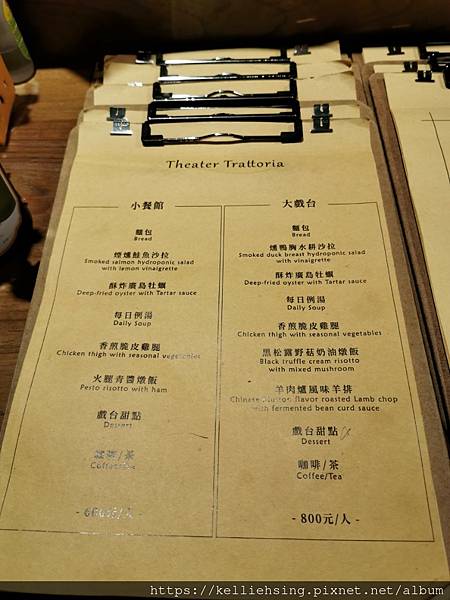 Theater Trattoria
小餐館
麵包
Bread
煙燻鮭魚沙拉
Smoked salmon hydroponic salad
with lemon vinaigrette
酥炸廣島牡蠣
Deep-fried oyster with Tartar sauce
每日例湯
Daily Soup
香煎脆皮雞腿
Chicken thigh with seasonal vegetables
火腿青醬燉飯
Pesto risotto with ham
戲台甜點
Dessert
咖啡/茶
Coffee/Tea
- 600元/人 -
大戲台
麵包
Bread
燻鴨胸水耕沙拉
Smoked duck breast hydroponic salad
with vinaigrette
酥炸廣島牡蠣
Deep-fried oyster with Tartar sauce
每日例湯
Daily Soup
香煎脆皮雞腿
Chicken thigh with seasonal vegetables
黑松露野菇奶油燉飯
Black truffle cream risotto
with mixed mushroom
羊肉爐風味羊排
Chinese flavor roasted Lamb chop
with fermented bean curd sauce
戲台甜點
Dessert
咖啡/茶
Coffee/Tea
- 800元/人 -
https://kelliehsing.pixnet.net/album